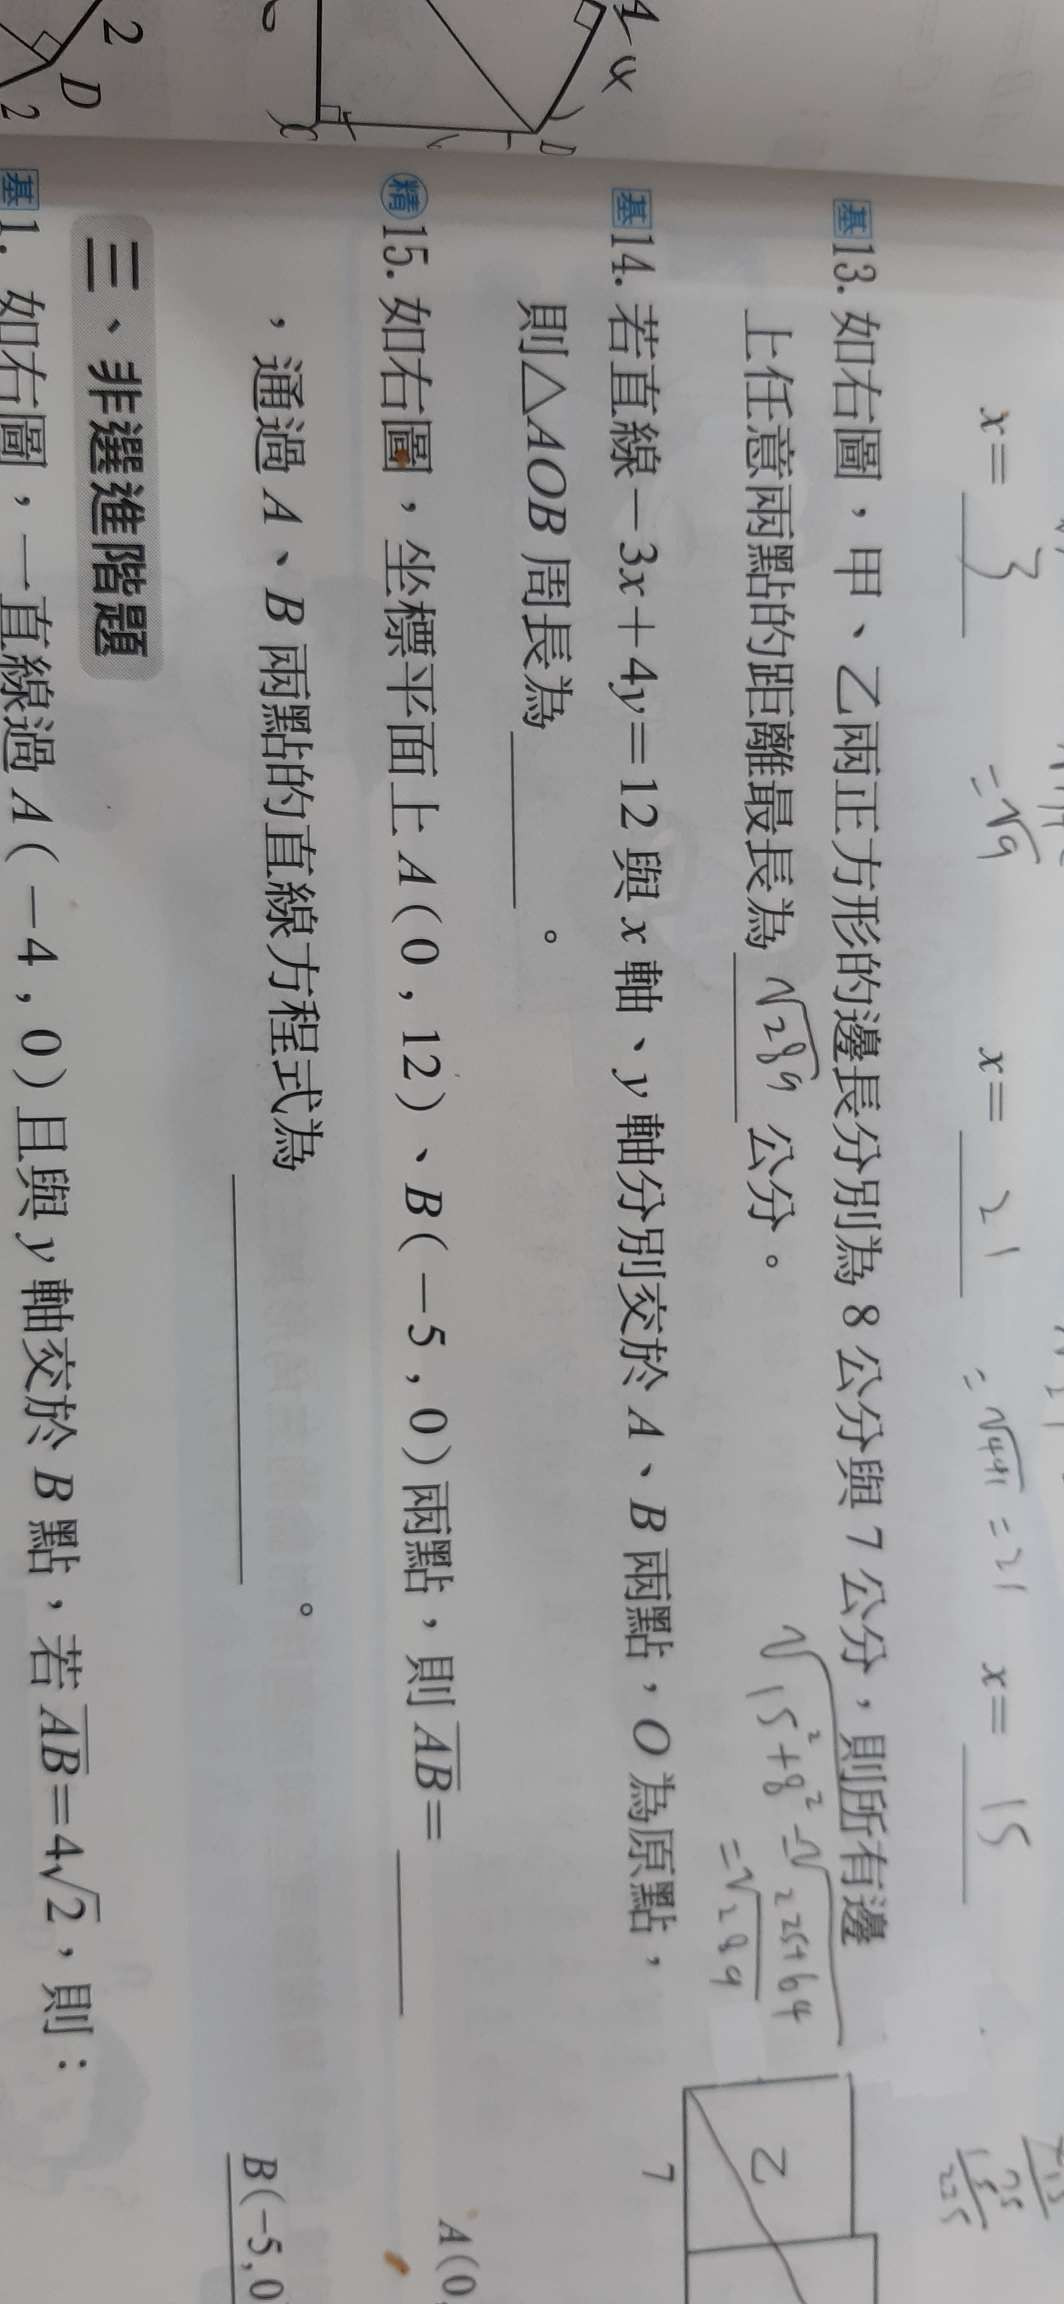 x= 3
=√9
x= 21
=√441=21
x= 15
基13. 如右圖，甲、乙兩正方形的邊長分別為 8 公分與 7 公分，則所有邊
上任意兩點的距離最長為 √289 公分。
√15²+8²=√225+64
=√289
乙
7
基14. 若直線－3x＋4y＝12 與 x 軸、y 軸分別交於 A、B 兩點，O 為原點，
則△AOB 周長為　　　。
精15. 如右圖，坐標平面上 A(0，12)、B(－5，0)兩點，則 AB＝
，通過 A、B 兩點的直線方程式為　　　。
A(0,
B(−5,0
三、非選進階題
基1. 如右圖，一直線過 A(－4，0)且與 y 軸交於 B 點，若 AB＝4√2，則：
4
D
C
2
D
2